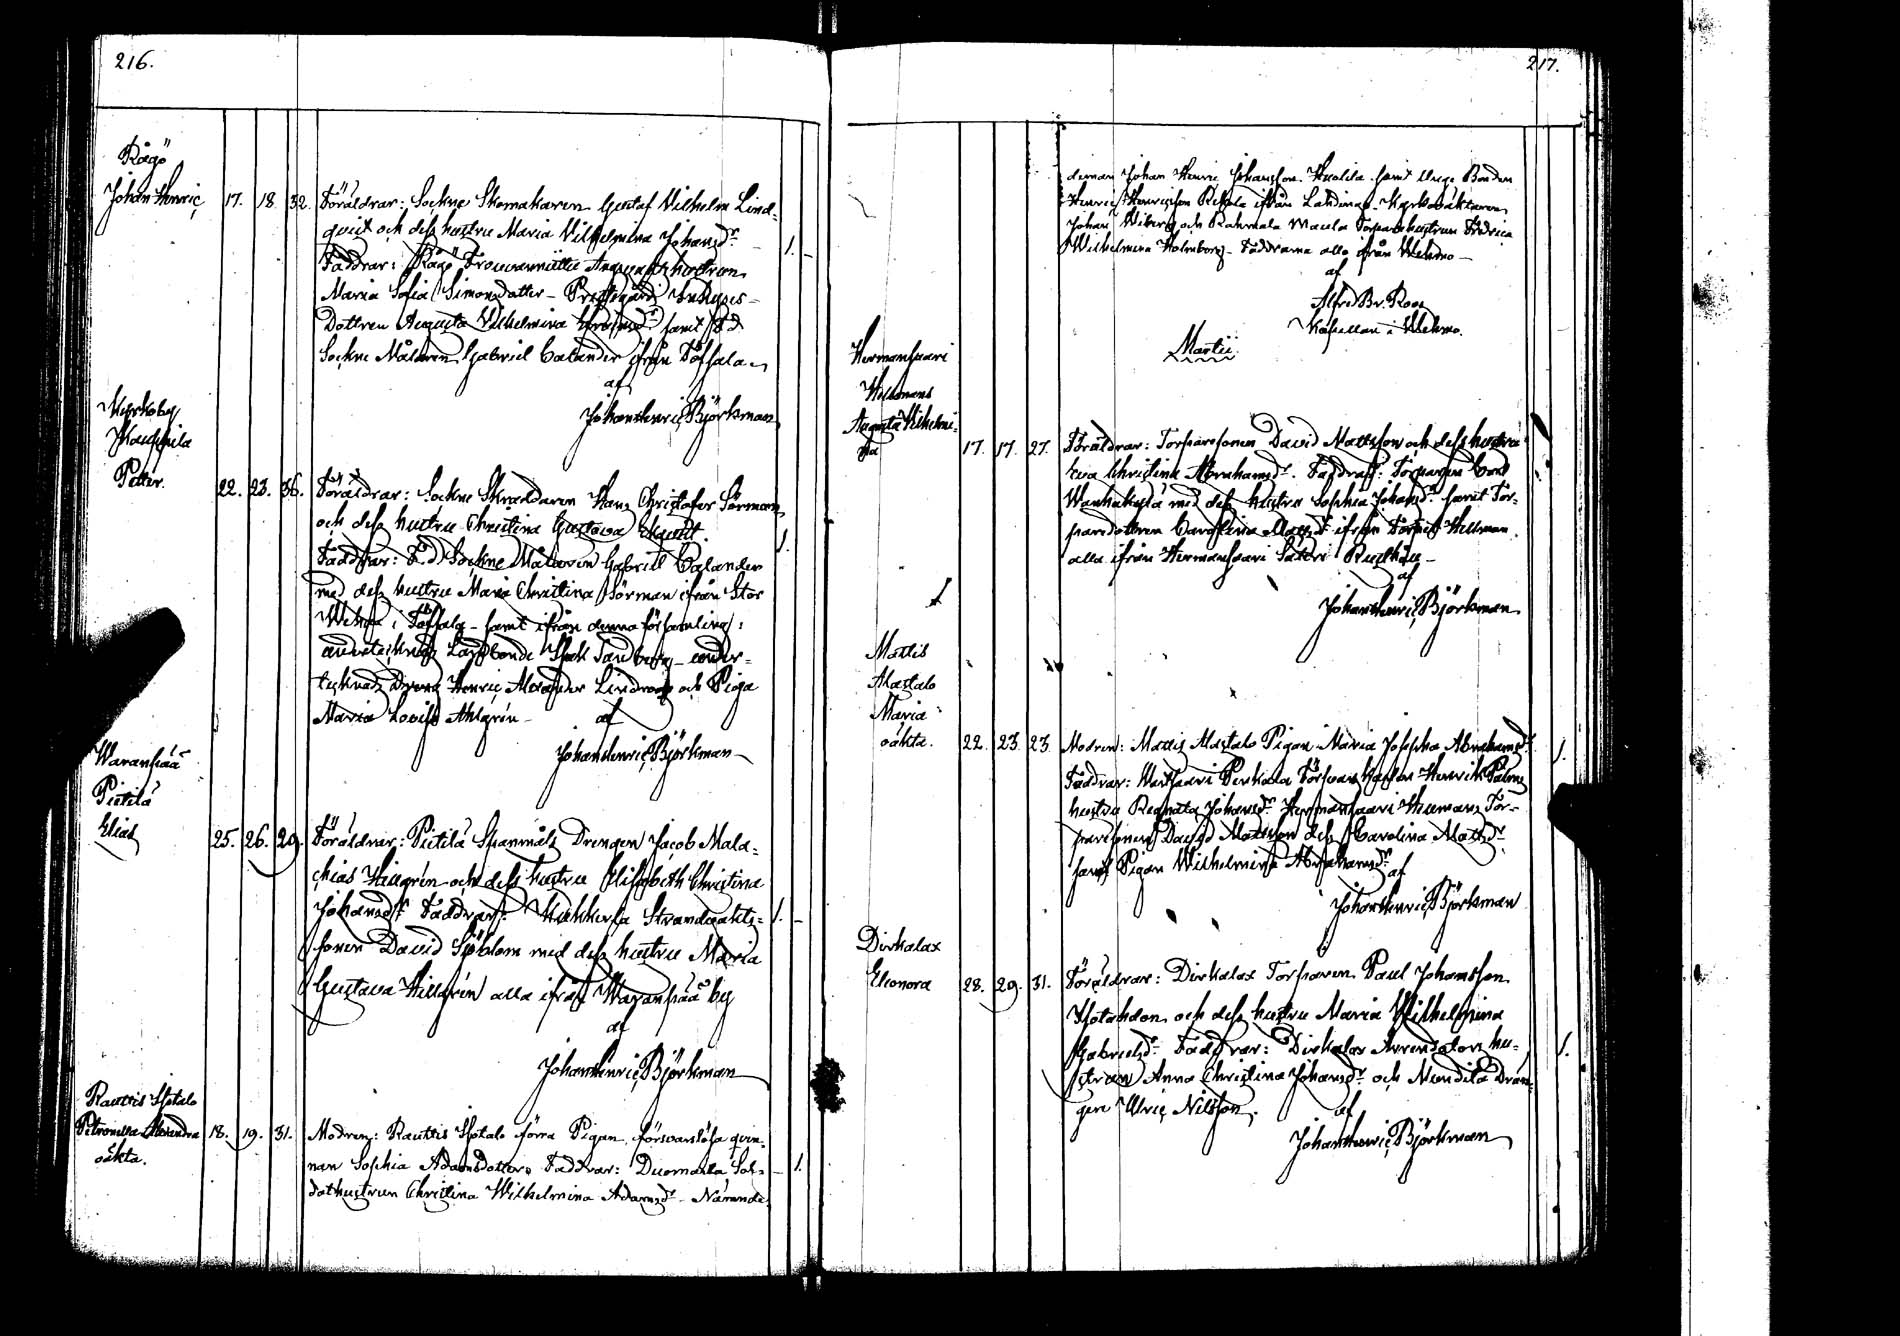 216.
Rågö
Johan Henric 17. 18. 32. Föräldrar: Sockne Skomakaren Gustaf Vilhelm Lind-
qvist och dess hustru Maria Vilhelmina Johansdr 1.
Faddrar: Rågö hustrun
Maria Sofia Simonsdotter - Inhyses-
Dottren Augusta Vilhelmina samt
Sockne Målaren Gabriel Calander ifrån Töfsala
af
Johan Henric Björkman
Kyrkoby
Petter. 22. 23. 36. Föräldrar: Sockne Skräddaren Hans Christofer Sörman
och dess hustru Christina Gustava 1.
Faddrar: F.d. Sockne Målaren Gabriel Calander
med dess hustru Maria Christina Sörman ifrån Stor
i Töfsala - samt ifrån denna församling:
Landbonde
Dreng Henric Alexander Lindroos och Piga
Maria Lovisa Ahlgrén -
af
Johan Henric Björkman
Waranpää
Pietilä
Elias 25. 26. 29. Föräldrar: Pietilä Drengen Jacob Mala-
chias Hillgrén och dess hustru Elisabeth Christina
Johansdr Faddrar: Strandvakts- 1.
sonen David Sjöblom med dess hustru Maria
Gustava Hillgrén alla ifrån Waranpää by
af
Johan Henric Björkman
Rauttis Isotalo
Petronella Alexandra 18. 19. 31. Modren: Rauttis Isotalo förra Pigan, försvarslösa qvin-
oäkta. nan Sophia Adamsdotter. Faddrar: Sol- 1.
dathustrun Christina Wilhelmina Adamsdr - Nämnde-
217.
deman Johan Henric Johansson samt Bonden
Henric Henricsson ifrån
Johan Wiberg och Torparehustrun Fredrica
Wilhelmina Holmberg - Faddrarna alla ifrån Wehmo -
af
Alfred Br. Roos
Kapellan i Wehmo.
Martii.
Hermansaari
Hellmans
Augusta Wilhelmi-
na 17. 17. 27. Föräldrar: Torparesonen David Mattsson och dess hustru
Eva Christina Abrahamsdr. Faddrar: Torparen
med dess hustru Sophia Johansdr samt Tor-
paredottren Carolina Mattsdr ifrån Torpet Hellman
alla ifrån Hermansaari Säteri
af
Johan Henric Björkman
Mattis
Alastalo
Maria
oäkta. 22. 23. 23. Modren: Mattis Alastalo Pigan Maria Josepha Abrahamsdr 1.
Faddrar: Henrik
hustru Renata Johansdr Hermansaari Hellmans Tor-
paresonen David Mattsson dess Carolina Mattsdr
samt Pigan Wilhelmina Abrahamsdr
af
Johan Henric Björkman
Dirkalax
Eleonora 28. 29. 31. Föräldrar: Dirkalax Torparen Paul Johansson
och dess hustru Maria Wilhelmina
Gabrielsdr. Faddrar: Dirkalax Arrendators hu- 1.
strun Anna Christina Johansdr och Drän-
gen Ulric Nilsson.
af
Johan Henric Björkman